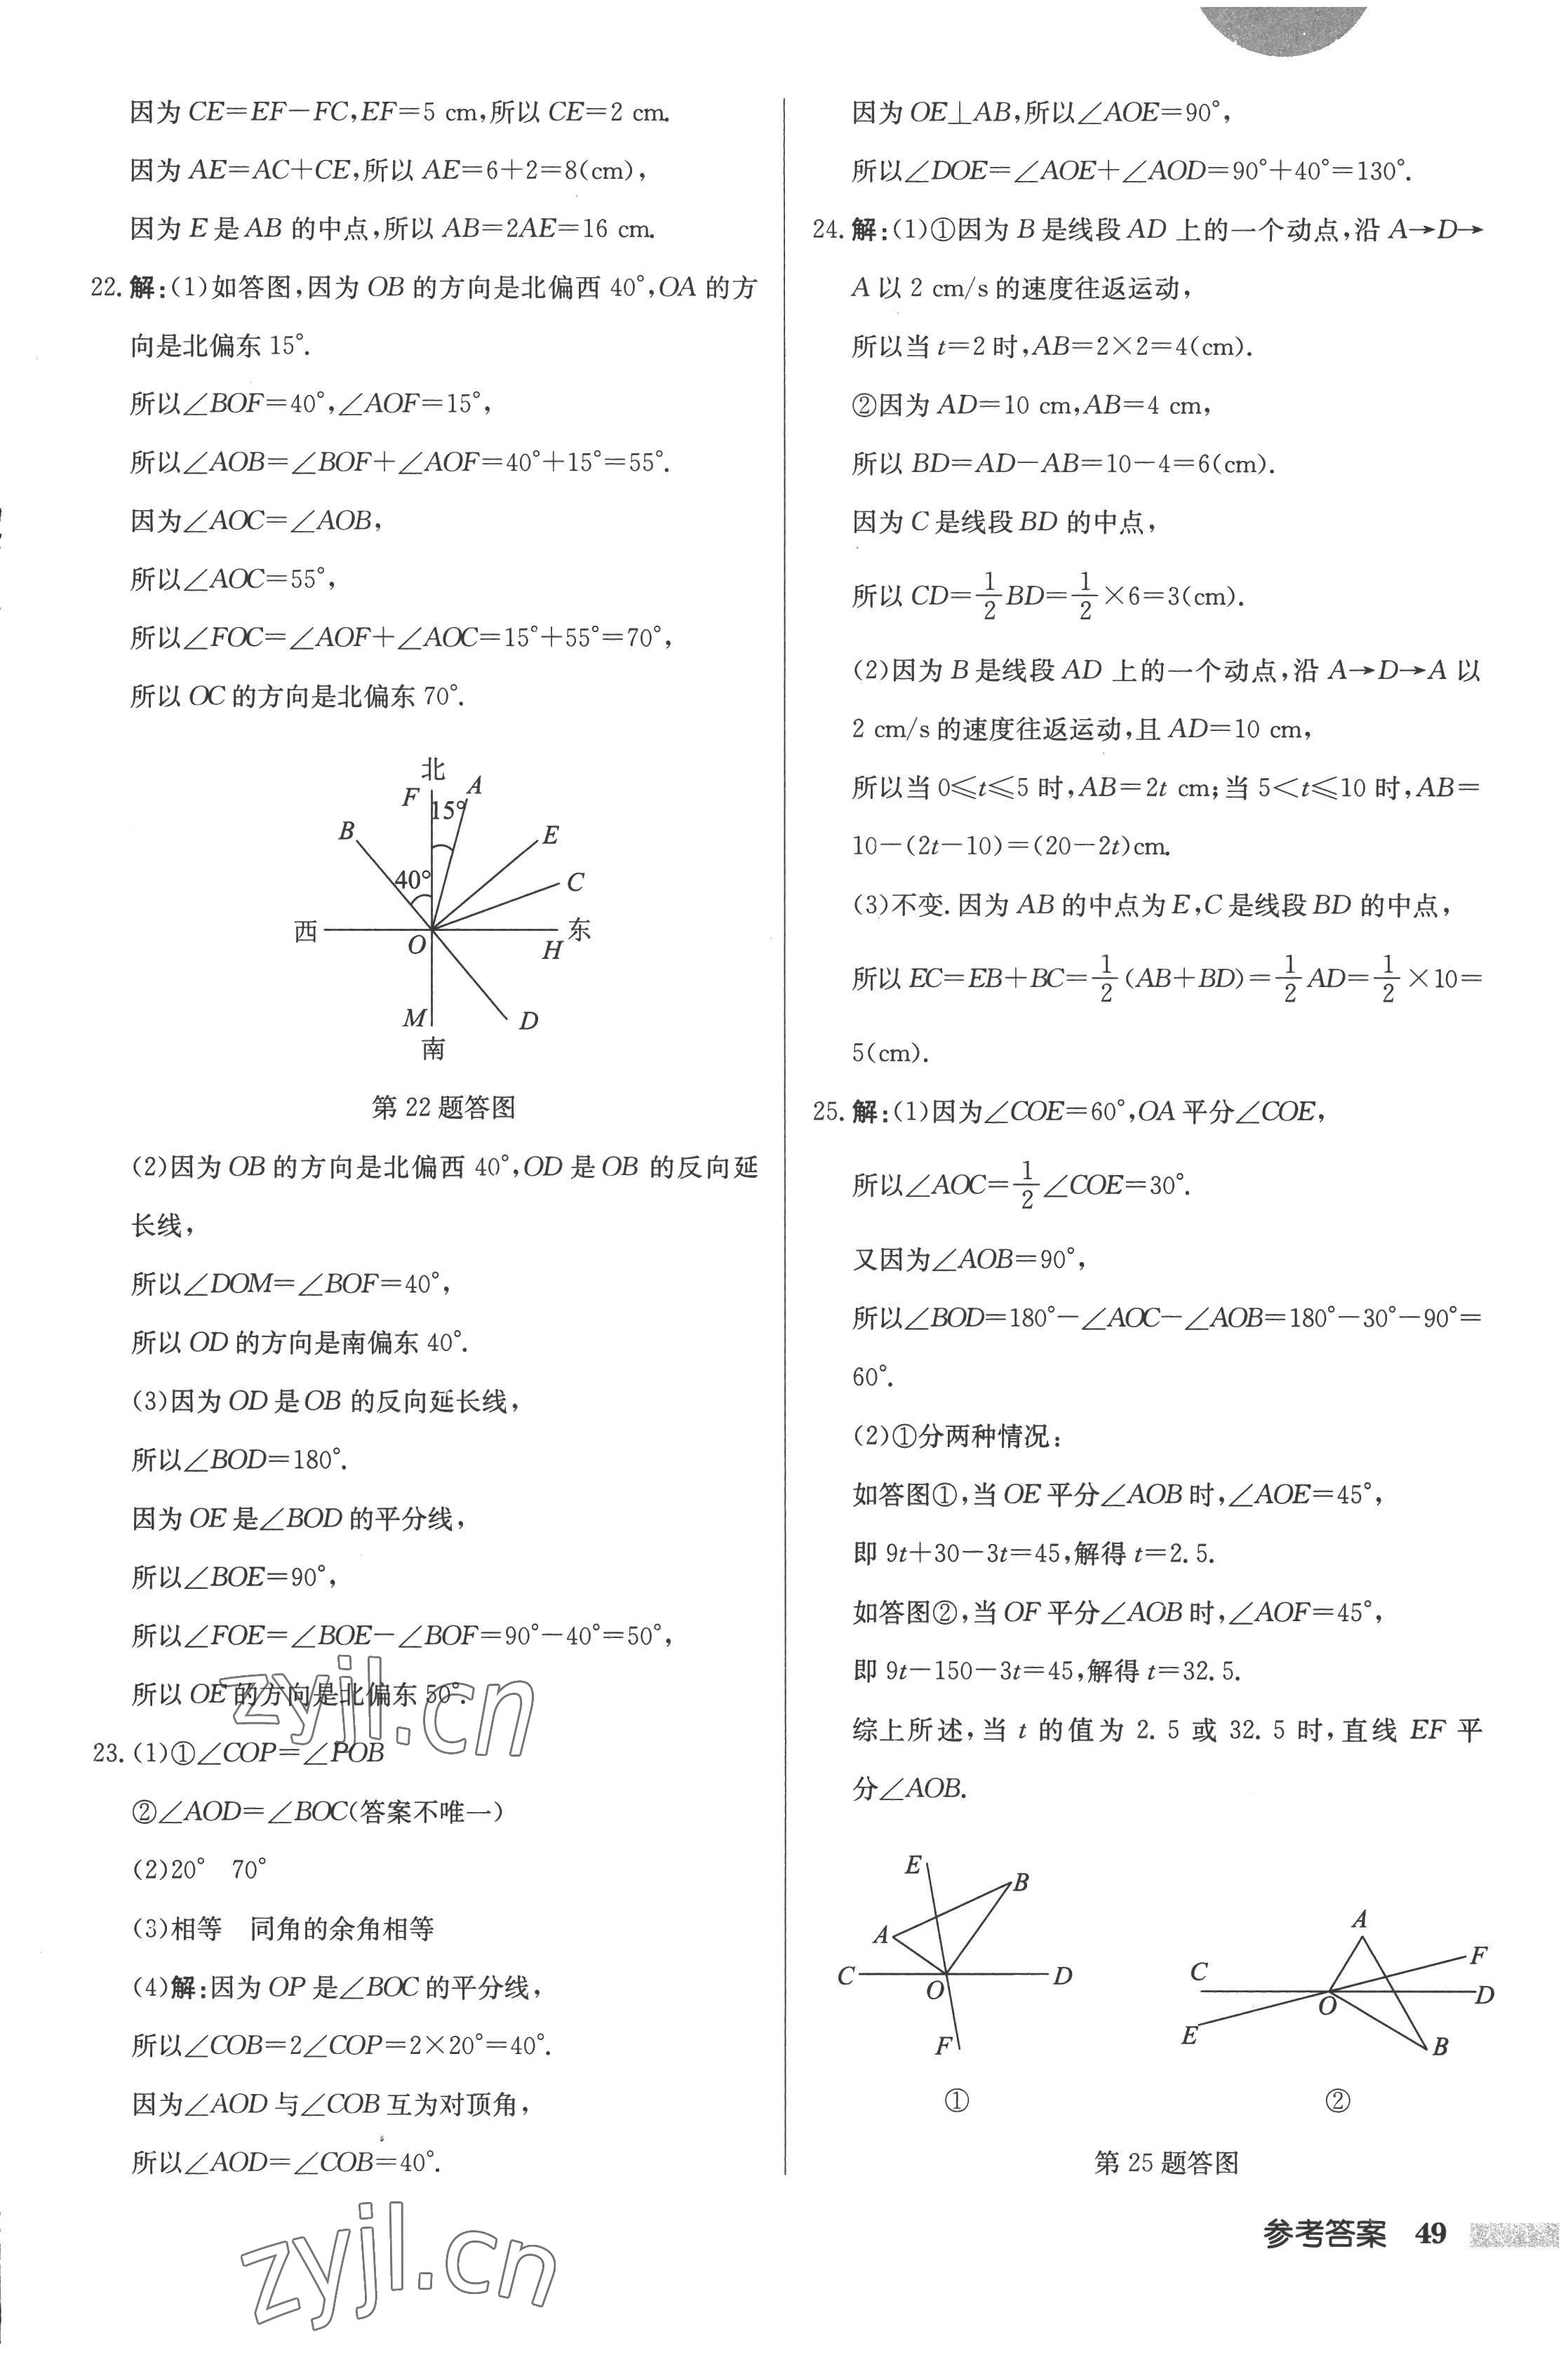 因为 CE=EF-FC,EF=5 cm,所以 CE=2 cm.
因为 AE=AC+CE,所以 AE=6+2=8(cm),
因为 E 是 AB 的中点,所以 AB=2AE=16 cm.
22. 解:(1)如答图,因为 OB 的方向是北偏西 40°,OA 的方
向是北偏东 15°.
所以∠BOF=40°,∠AOF=15°,
所以∠AOB=∠BOF+∠AOF=40°+15°=55°.
因为∠AOC=∠AOB,
所以∠AOC=55°,
所以∠FOC=∠AOF+∠AOC=15°+55°=70°,
所以 OC 的方向是北偏东 70°.
北
F
A
15°
B
E
40°
C
西
O
H
东
M
D
南
第 22 题答图
(2)因为 OB 的方向是北偏西 40°,OD 是 OB 的反向延
长线,
所以∠DOM=∠BOF=40°,
所以 OD 的方向是南偏东 40°.
(3)因为 OD 是 OB 的反向延长线,
所以∠BOD=180°.
因为 OE 是∠BOD 的平分线,
所以∠BOE=90°,
所以∠FOE=∠BOE-∠BOF=90°-40°=50°,
所以 OE 的方向是北偏东 50°.
zyjl.cn
23. (1)①∠COP=∠POB
②∠AOD=∠BOC(答案不唯一)
(2)20° 70°
(3)相等 同角的余角相等
(4)解:因为 OP 是∠BOC 的平分线,
所以∠COB=2∠COP=2×20°=40°.
因为∠AOD 与∠COB 互为对顶角,
所以∠AOD=∠COB=40°.
zyjl.cn
因为 OE⊥AB,所以∠AOE=90°,
所以∠DOE=∠AOE+∠AOD=90°+40°=130°.
24. 解:(1)①因为 B 是线段 AD 上的一个动点,沿 A→D→
A 以 2 cm/s 的速度往返运动,
所以当 t=2 时,AB=2×2=4(cm).
②因为 AD=10 cm,AB=4 cm,
所以 BD=AD-AB=10-4=6(cm).
因为 C 是线段 BD 的中点,
所以 CD=1/2 BD=1/2×6=3(cm).
(2)因为 B 是线段 AD 上的一个动点,沿 A→D→A 以
2 cm/s 的速度往返运动,且 AD=10 cm,
所以当 0≤t≤5 时,AB=2t cm;当 5<t≤10 时,AB=
10-(2t-10)=(20-2t)cm.
(3)不变.因为 AB 的中点为 E,C 是线段 BD 的中点,
所以 EC=EB+BC=1/2(AB+BD)=1/2 AD=1/2×10=
5(cm).
25. 解:(1)因为∠COE=60°,OA 平分∠COE,
所以∠AOC=1/2∠COE=30°.
又因为∠AOB=90°,
所以∠BOD=180°-∠AOC-∠AOB=180°-30°-90°=
60°.
(2)①分两种情况:
如答图①,当 OE 平分∠AOB 时,∠AOE=45°,
即 9t+30-3t=45,解得 t=2.5.
如答图②,当 OF 平分∠AOB 时,∠AOF=45°,
即 9t-150-3t=45,解得 t=32.5.
综上所述,当 t 的值为 2.5 或 32.5 时,直线 EF 平
分∠AOB.
E
B
A
C
O
D
F
①
A
F
C
O
D
E
B
②
第 25 题答图
参考答案 49